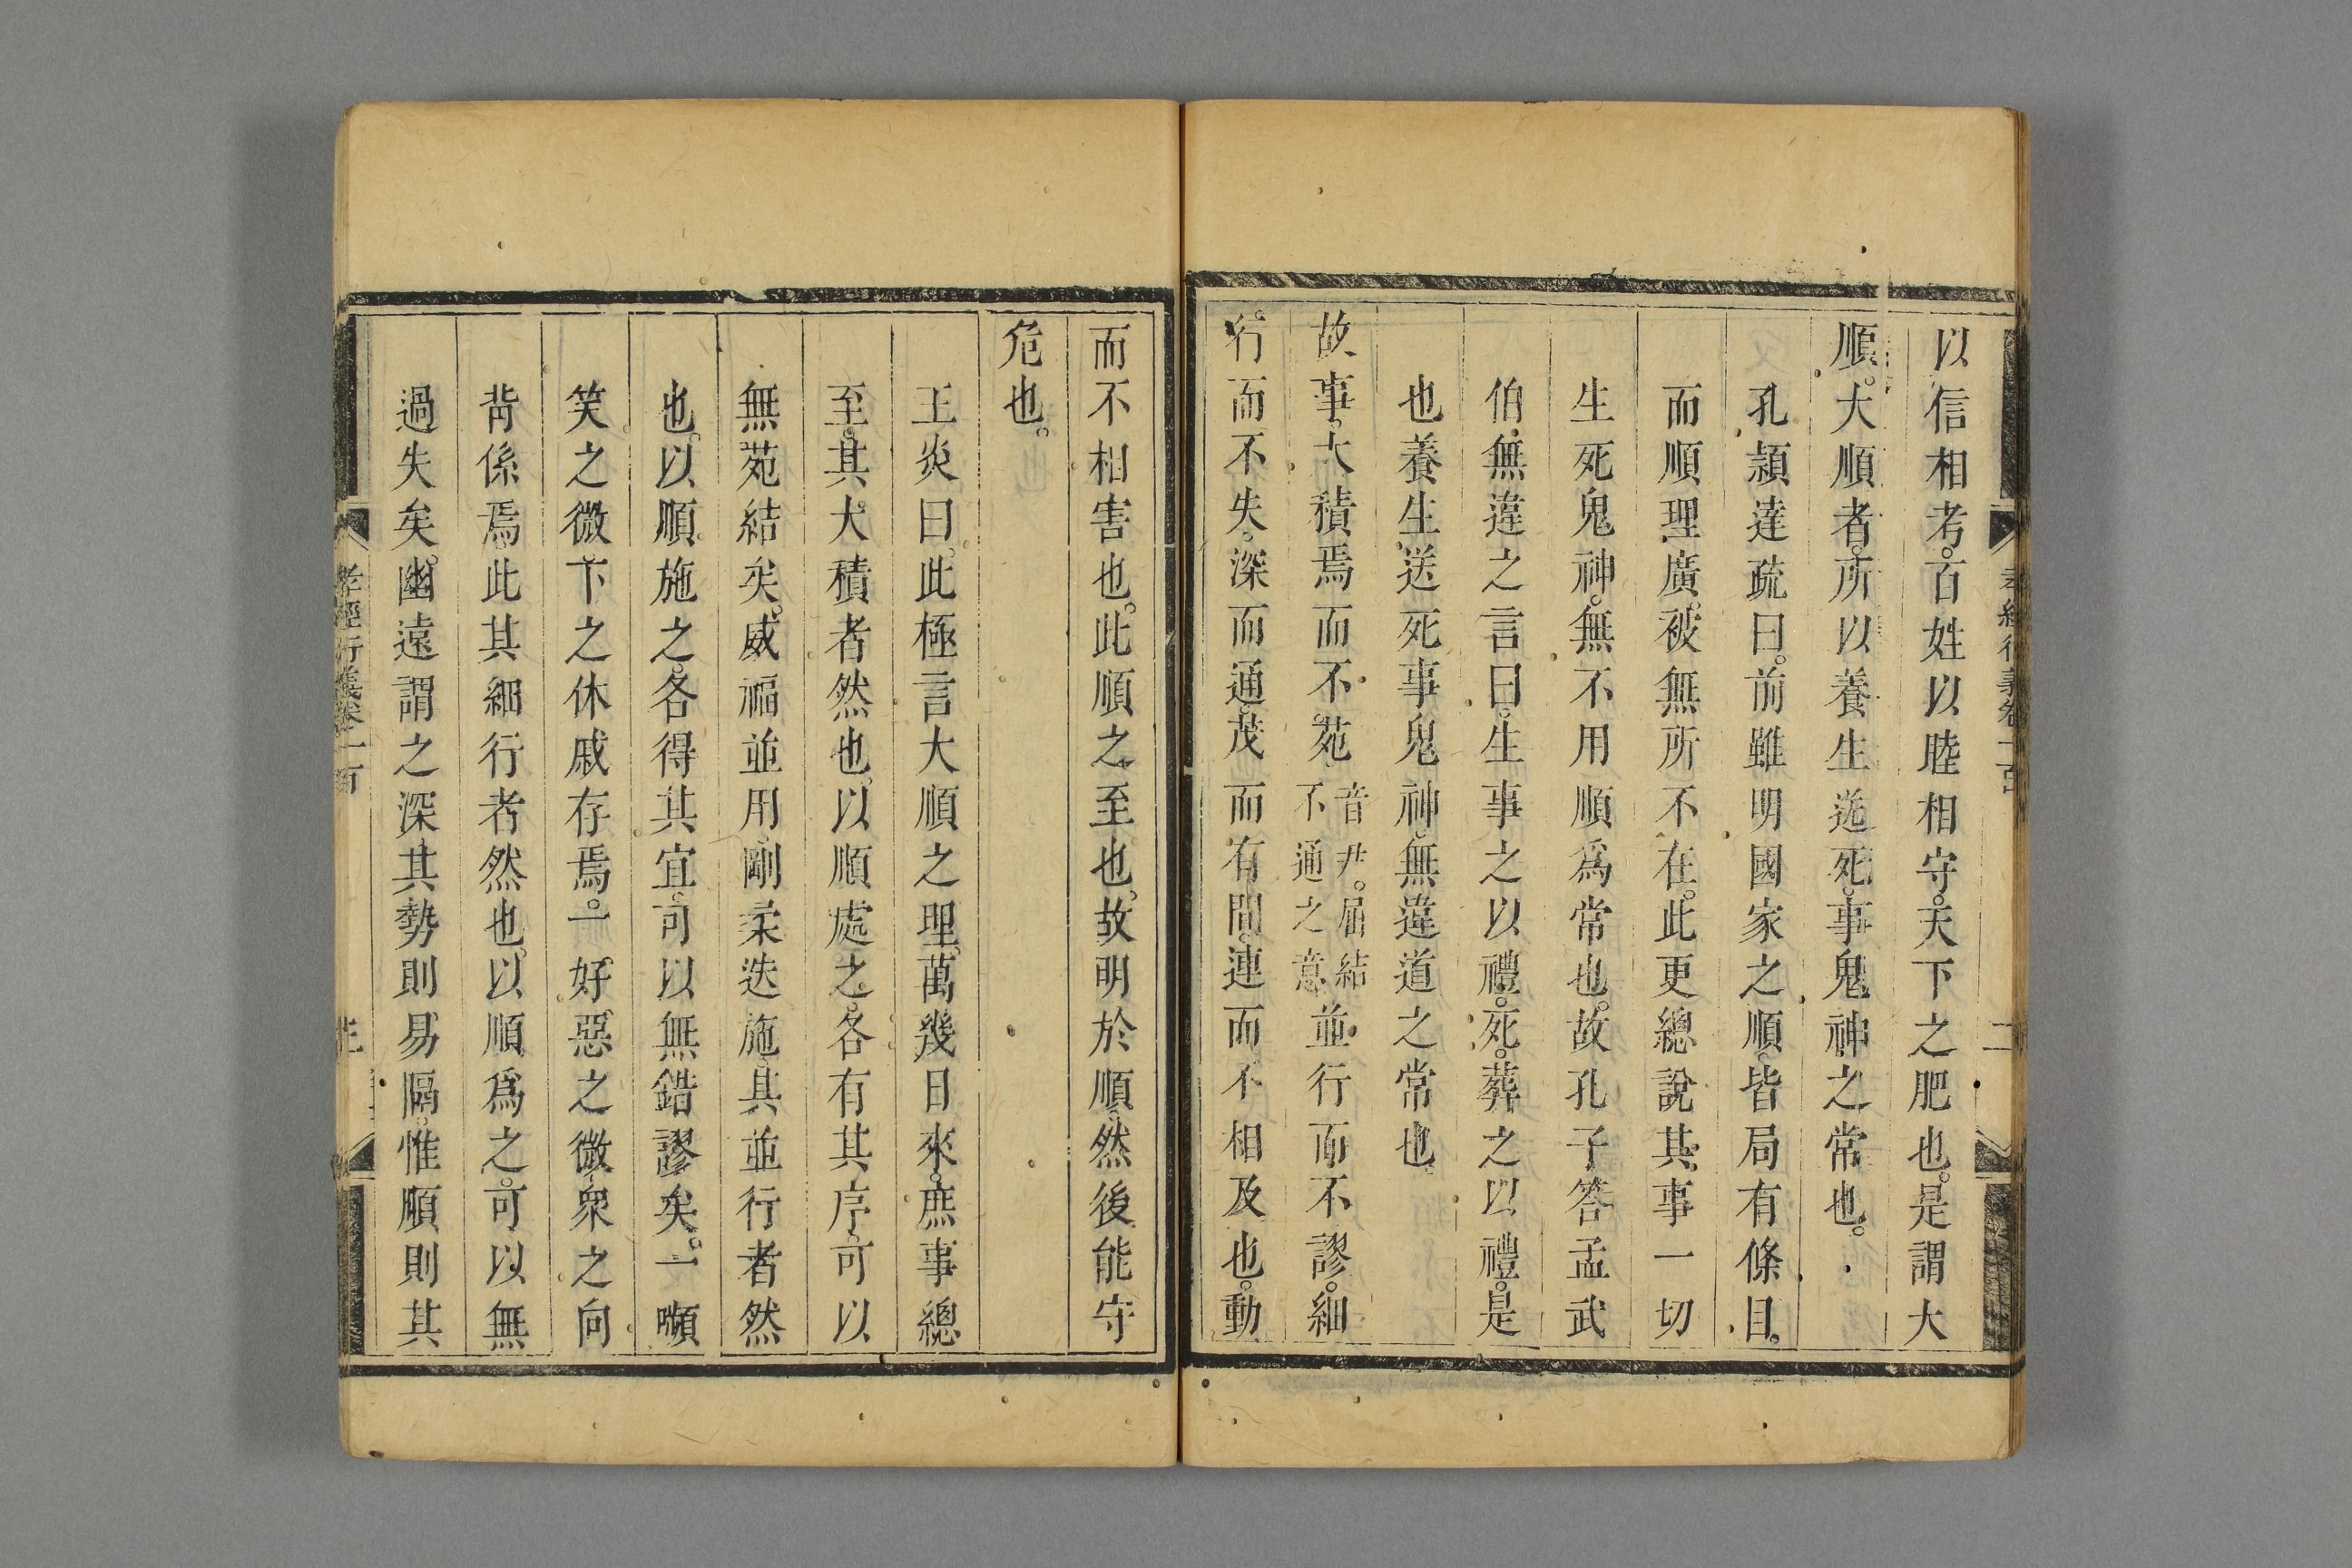 以信相考。百姓以睦相守。天下之肥也。是謂大
順。大順者。所以養生送死。事鬼神之常也。
孔頴達疏曰。前雖明國家之順。皆局有條目。
而順理廣被。無所不在。此更總說其事。一切
生死鬼神。無不用順爲常也。故孔子答孟武
伯無違之言曰。生事之以禮。死。葬之以禮。是
也養生送死事鬼神。無違道之常也。
故事。大積焉而不苑音尹。屈結不通之意並行而不謬。細
行而不失。深而通。茂而有間。連而不相及也。動
而不相害也。此順之至也。故明於順。然後能守
危也。
王炎曰。此極言大順之理。萬幾日來。庶事總
至。其大積者然也。以順處之。各有其序。可以
無苑結矣。威福並用。剛柔迭施。其並行者然
也。以順施之。各得其宜。可以無錯謬矣。一嚬
笑之微。下之休戚存焉。一好惡之微。衆之向
背係焉。此其細行者然也。以順爲之。可以無
過失矣。幽遠謂之深。其勢則易隔。惟順則其
孝經衍義卷一百
二